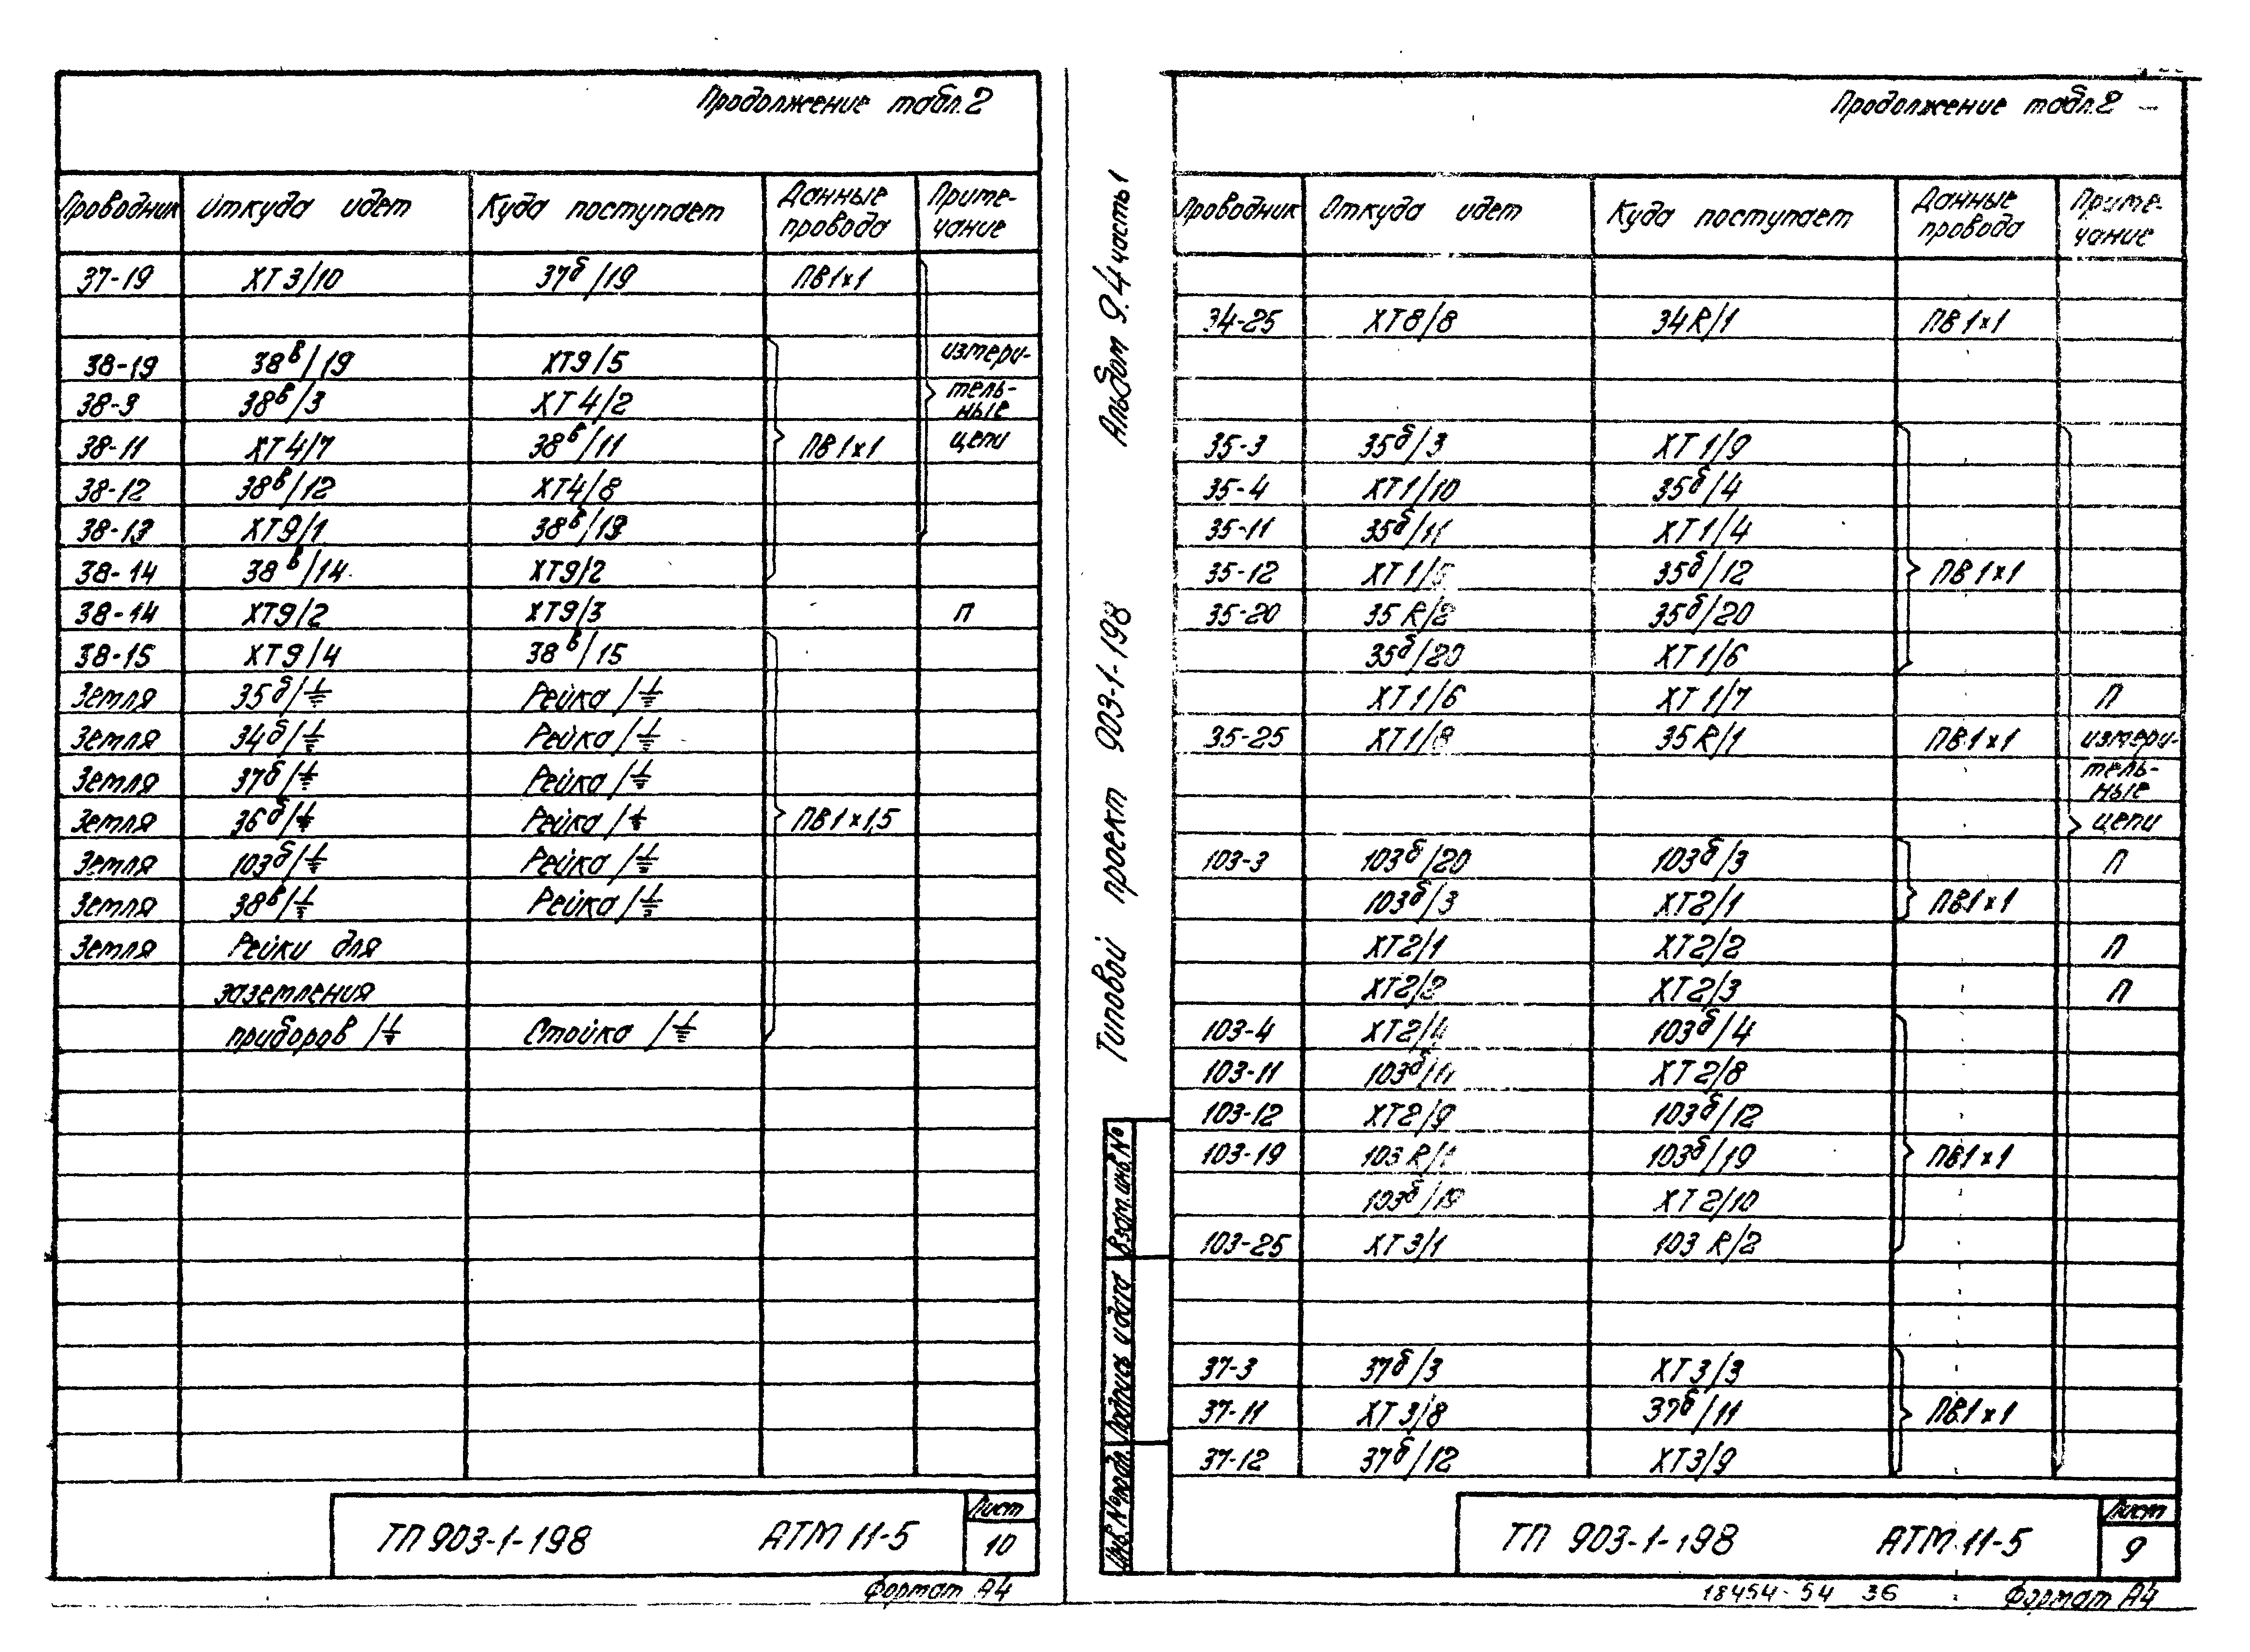 Продолжение табл.2
Проводник Откуда идет Куда поступает Данные провода Приме-чание
37-19 ХТ3/10 37б/19 ПВ1×1
38-19 38в/19 ХТ9/5 измери-
38-3 38в/3 ХТ4/2 тель-ные
38-11 ХТ4/7 38в/11 ПВ1×1 цепи
38-12 38в/12 ХТ4/8
38-13 ХТ9/1 38в/13
38-14 38в/14 ХТ9/2
38-14 ХТ9/2 ХТ9/3 П
38-15 ХТ9/4 38в/15
Земля 35б/⏚ Рейка/⏚
Земля 34б/⏚ Рейка/⏚
Земля 37б/⏚ Рейка/⏚
Земля 36б/⏚ Рейка/⏚ ПВ1×1,5
Земля 103б/⏚ Рейка/⏚
Земля 38в/⏚ Рейка/⏚
Земля Рейки для
заземления
приборов/⏚ Стойка/⏚
ТП 903-1-198 АТМ 11-5 Лист 10
Формат А4
Альбом 9.4 часть 1
Типовой проект 903-1-198
Взам.инв.№
Подпись и дата
Инв.№подл.
Продолжение табл.2
Проводник Откуда идет Куда поступает Данные провода Приме-чание
34-25 ХТ8/8 34R/1 ПВ1×1
35-3 35б/3 ХТ1/9
35-4 ХТ1/10 35б/4
35-11 35б/11 ХТ1/4
35-12 ХТ1/5 35б/12 ПВ1×1
35-20 35R/2 35б/20
35б/20 ХТ1/6
ХТ1/6 ХТ1/7 П
35-25 ХТ1/8 35R/1 ПВ1×1 измери-
тель-
ные
цепи
103-3 103б/20 103б/3 П
103б/3 ХТ2/1 ПВ1×1
ХТ2/1 ХТ2/2 П
ХТ2/2 ХТ2/3 П
103-4 ХТ2/4 103б/4
103-11 103б/11 ХТ2/8
103-12 ХТ2/9 103б/12
103-19 103R/1 103б/19 ПВ1×1
103б/19 ХТ2/10
103-25 ХТ3/1 103R/2
37-3 37б/3 ХТ3/3
37-11 ХТ3/8 37б/11 ПВ1×1
37-12 37б/12 ХТ3/9
ТП 903-1-198 АТМ 11-5 Лист 9
18454-54 36 Формат А4